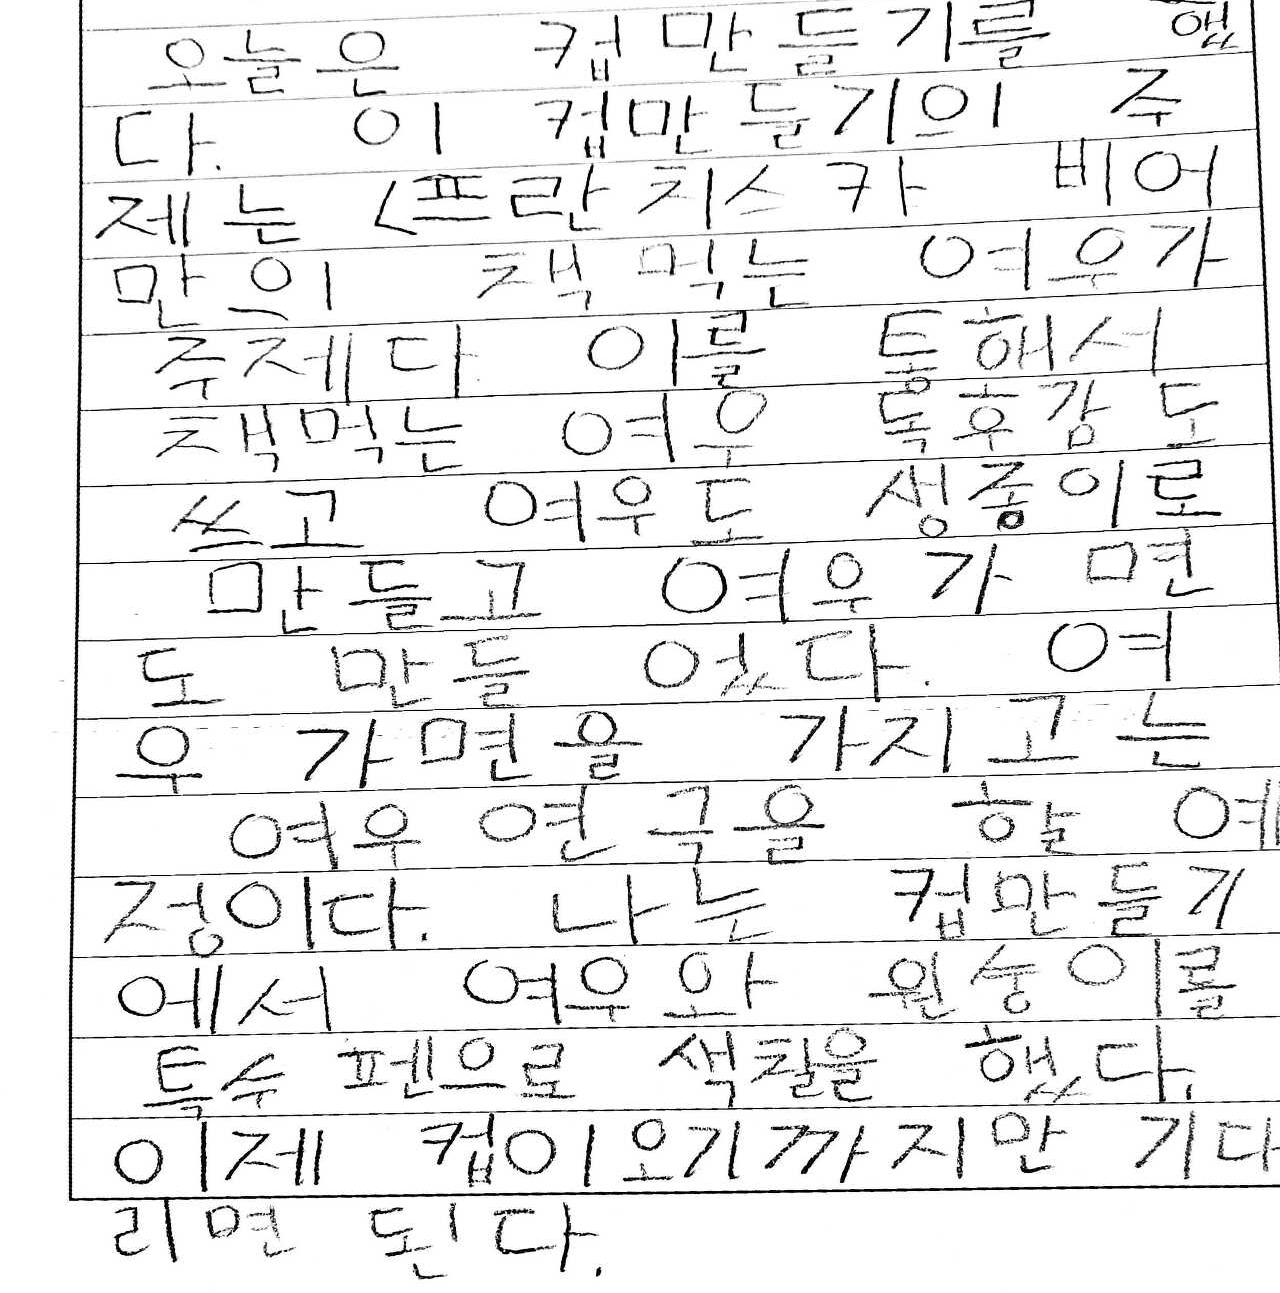 오늘은 컵만들기를 했
다. 이 컵만들기의 주
제는 <프란치스카 비어
만의 책먹는 여우가
주제다 이를 통해서
책먹는 여우 독후감도
쓰고 여우도 생종이로
만들고 여우가면
도 만들었다. 여
우 가면을 가지고는
여우연극을 할 예
정이다. 나는 컵만들기
에서 여우와 원숭이를
특수펜으로 색칠을 했다.
이제 컵이오기까지만 기다
리면 된다.